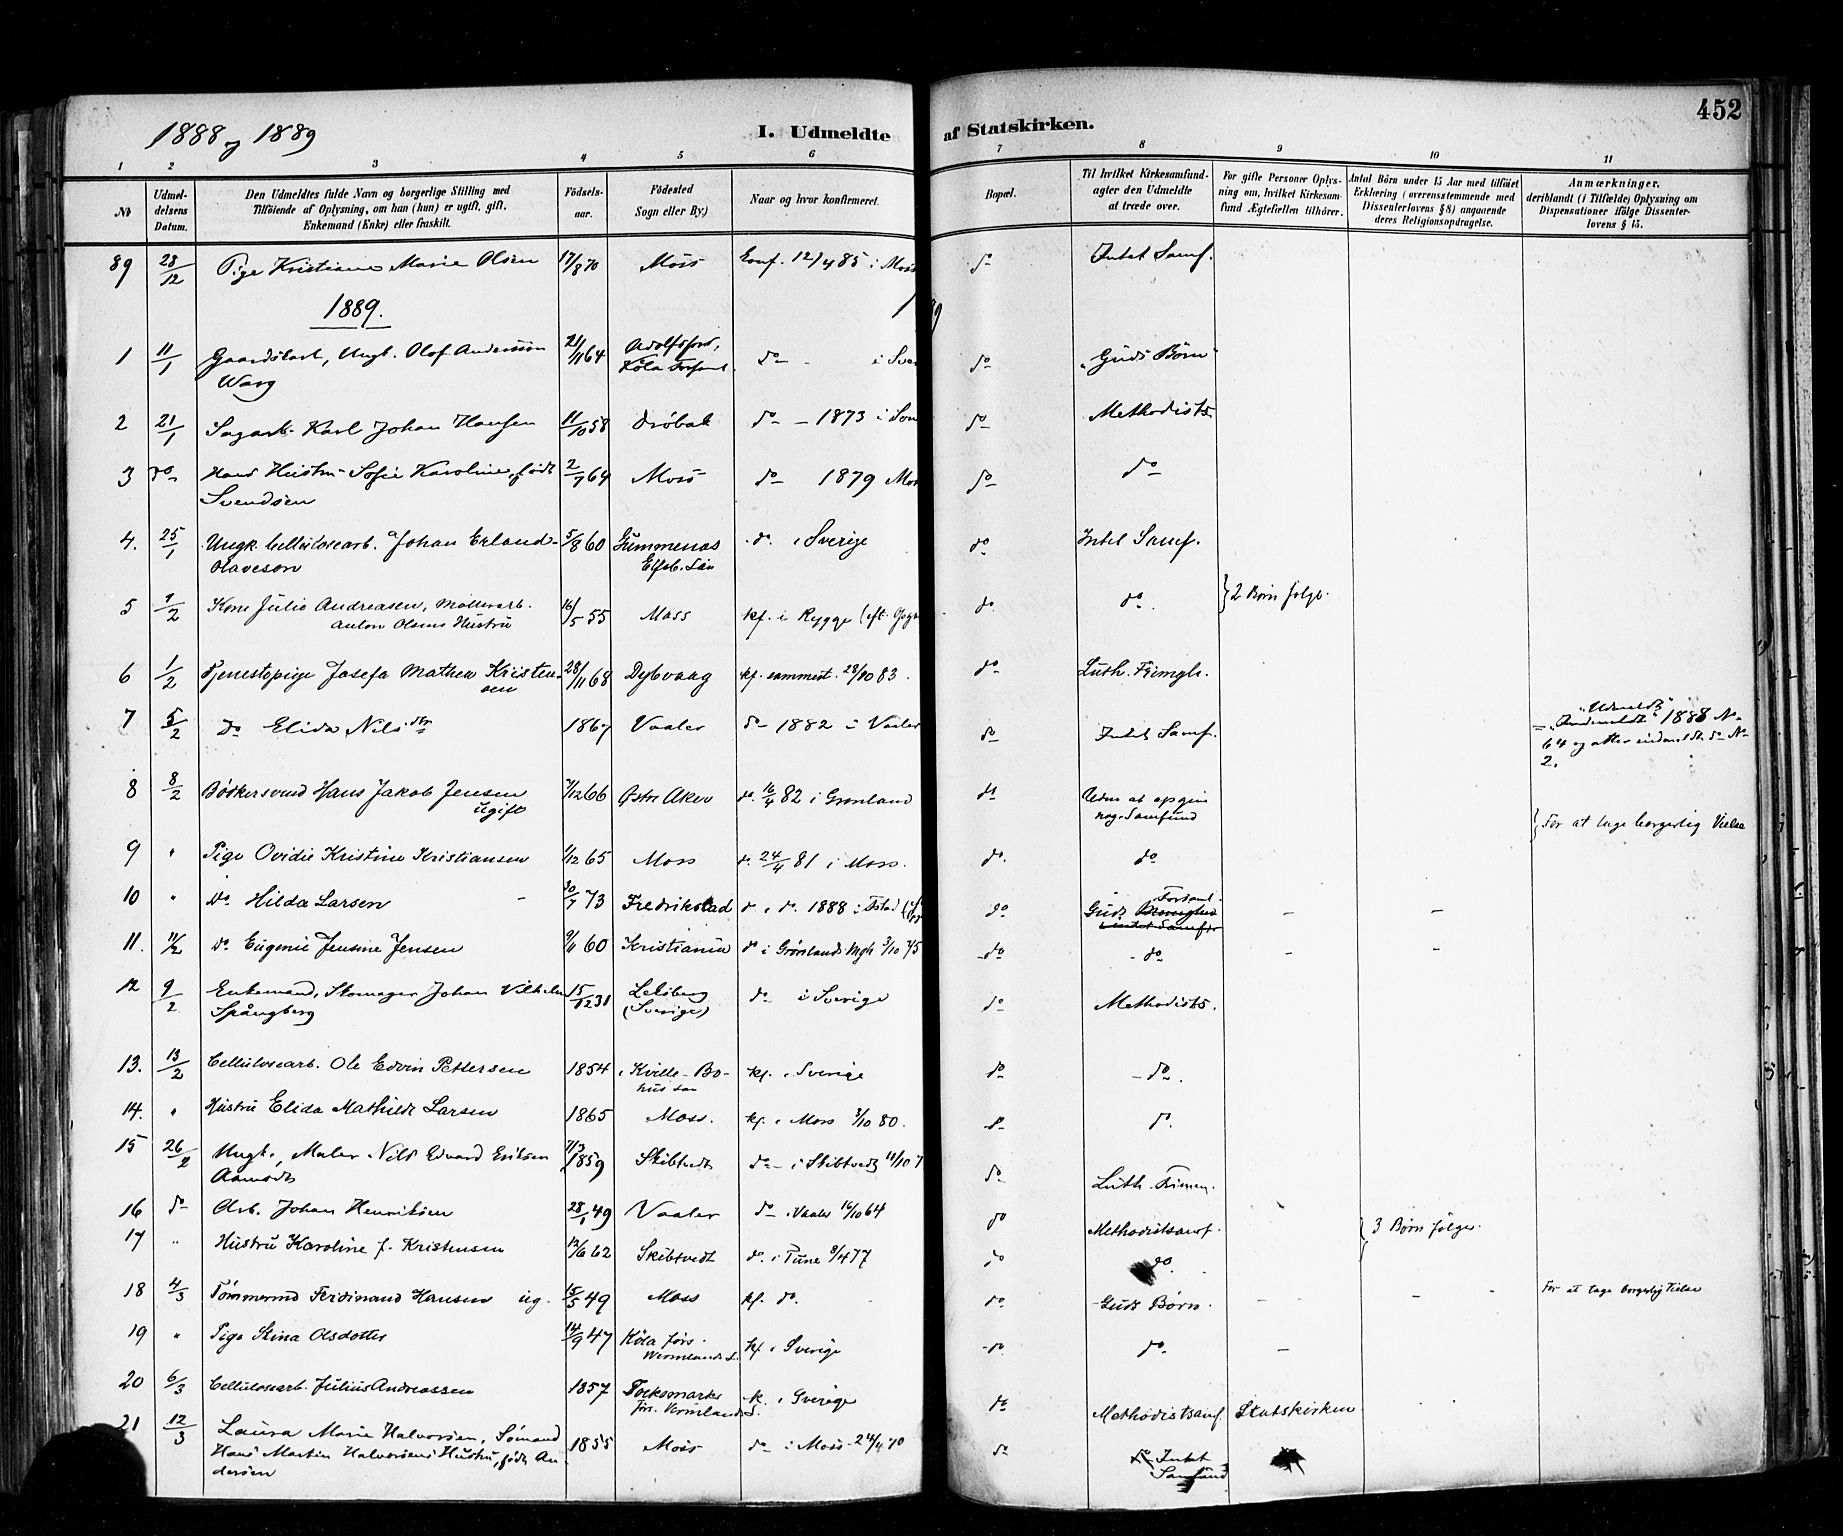 1888 og 1889
I. Udmeldte af Statskirken.
452
1 2 3 4 5 6 7 8 9 10 11
No
Udmel-
delsens
Datum.
Den Udmeldtes fulde Navn og borgerlige Stilling med
Tilføiende af Oplysning, om han (hun) er ugift, gift,
Enkemand (Enke) eller fraskilt.
Fødsels-
aar.
Fødested
Sogn eller By.)
Naar og hvor konfirmeret.
Bopæl.
Til hvilket Kirkesamfund-
agter den Udmeldte
at træde over.
For gifte Personer Oplys-
ning om, hvilket Kirkesam-
fund Ægtefællen tilhører.
Antal Børn under 15 Aar med tilføiet
Erklæring (overensstemmende med
Dissenterlovens § 8) angaaende
deres Religionsopdragelse.
Anmærkninger,
deriblandt (i Tilfælde) Oplysning om
Dispensationer ifølge Dissenter-
lovens § 15.
89 28/12 Pige Kristiane Marie Olsen 17/8 70 Moss Conf. 12/4 85 i Moss do Intet Samf.
1889.
1 11/1 Gaardskarl, Ungk. Olof Andersson 21/11 64 Adolfsfors, do - i Sver do "Guds Børn"
Warg Köla Forsaml.
2 21/1 Sagarb. Karl Johan Hansen 11/10 58 Drøbak do - 1873 i Son do Methodists.
3 do Hans Hustru Sofie Karoline, født 2/7 64 Moss do 1879 Mos do do
Svendsen
4. 25/1 Ungk. Cellulosearb. Johan Erland- 5/8 60 Gummenas do i Sverige do Intet Samf.
Olaveson Elfsb. Län
5 1/2 Kone Julie Andreasen, Møllerarb. 16/5 55 Moss kf. i Rygge (eft. do do. } 2 Børn følge.
Anton Olsens Hustru
6 1/2 Tjenestepige Josefa Mathea Kristen- 28/11 68 Dybvaag kf. sammest. 28/10 83. do Luth. Frimgh.
sen
7 5/2 do Elida Nilsdtr 1867 Vaaler do 1882 i Vaaler do Intet Samf. = "Udmeldt" 1888 No
64 og atter indmeldt do No
2.
8 8/2 Bødkersvend Hans Jakob Jensen 7/12 66 Østre Aker do. 16/4 82 i Grønland do Uden at opgive
ugift nog. Samfund
} For at tage borgerlig Vielse
9 " Pige Ovidie Kristine Kristiansen 1/12 65 Moss do. 24/4 81 i Moss. do. do
10 " do Hilda Larsen - 30/7 73 Fredrikstad do i do. 1888 i Fstad do Guds Forsaml. - -
11. 11/2 do Eugenie Jensine Jensen 9/11 60 Kristiania do i Grønlands Mgh 3/10 75 do - do - -
12 9/2 Enkemand, Skomager Johan Vilhelm 15/12 31 Lekeberg do i Sverige do Methodists.
Spångberg (Sverige)
13. 13/2 Cellulosearb. Ole Edvin Pettersen 1854 i Kville - Bo- kf. i Sverige do - do.
hus Län
14. " Hustru Elida Mathilde Larsen 1865 Moss. kf. i Moss 3/10 80. do do.
15 26/2 Ungk., Maler Nils Edvard Eriksen 7/3 1859 Skibtvedt do - i Skibtvedt 11/10 7 do Luth. Frimen.
Aamodt
16 do Arb. Johan Henriksen 28/1 49 Vaaler do i Vaaler 16/10 64 do Methodistsamf. } 3 Børn følge.
17 " Hustru Karoline f. Kristensen 12/6 62 Skibtvedt do. i Tune 8/4 77 do do.
18 4/3 Tømmermd Ferdinand Hansen ug. 15/5 49 Moss kf. do. do. Guds Børn. - - For at tage borgerlig Vielse
19 " Pige Stina Olsdotter 14/9 47 Köla førs. kf i Sverige do do. -
Wermlands L.
20 6/3 Cellulosearb. Julius Andreassen 1857 Tocksmarks k. i Sverige do Methodistsamf. Statskirken
førs. Vermlands L.
21 12/3 Laura Marie Halvorsen, Sømand 1855 Moss do i Moss 24/4 70 do do Intet
Hans Martin Halvorsens Hustru, født An- Samfund
dersen